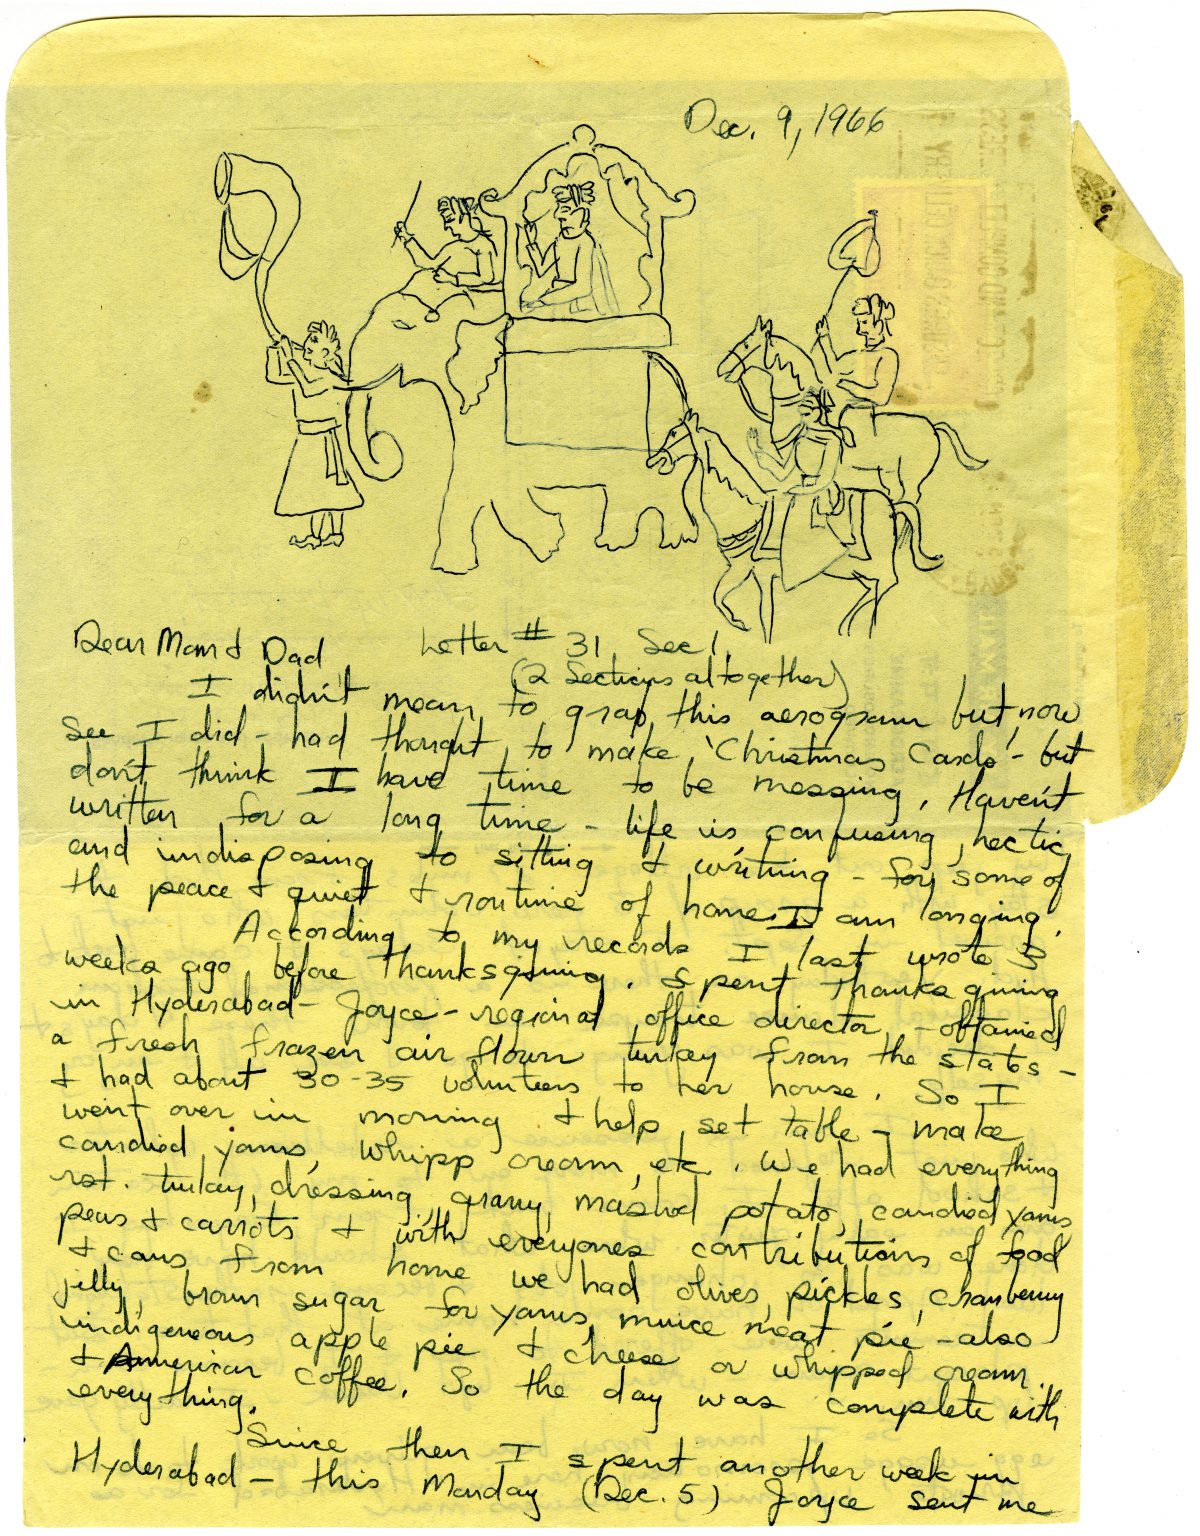 Dec. 9, 1966
Dear Mom & Dad Letter # 31 Sec 1.
(2 Sections altogether)
I didn't mean to grap this aerogram but now
see I did - had thought to make 'Christmas Cards' - but
don't think I have time to be messing. Haven't
written for a long time - life is confusing, hectic,
and indisposing to sitting & writing - for some of
the peace & quiet & routine of home I am longing.
According to my records I last wrote 3
weeks ago before Thanksgiving. Spent Thanksgiving
in Hyderabad - Joyce - regional office director - obtained
a fresh frozen air flown turkey from the states -
& had about 30-35 volunteers to her house. So I
went over in morning & help set table - make
candied yams, whipp cream, etc. We had everything
rst. turkey, dressing, gravy, mashed potato, candied yams
peas & carrots & with everyones contributions of food
& cans from home we had olives, pickles, cranberry
jelly, brown sugar for yams, mince meat pie - also
indigeneous apple pie & cheese or whipped cream
& American coffee. So the day was complete with
everything.
Since then I spent another week in
Hyderabad - this Monday (Dec. 5) Joyce sent me